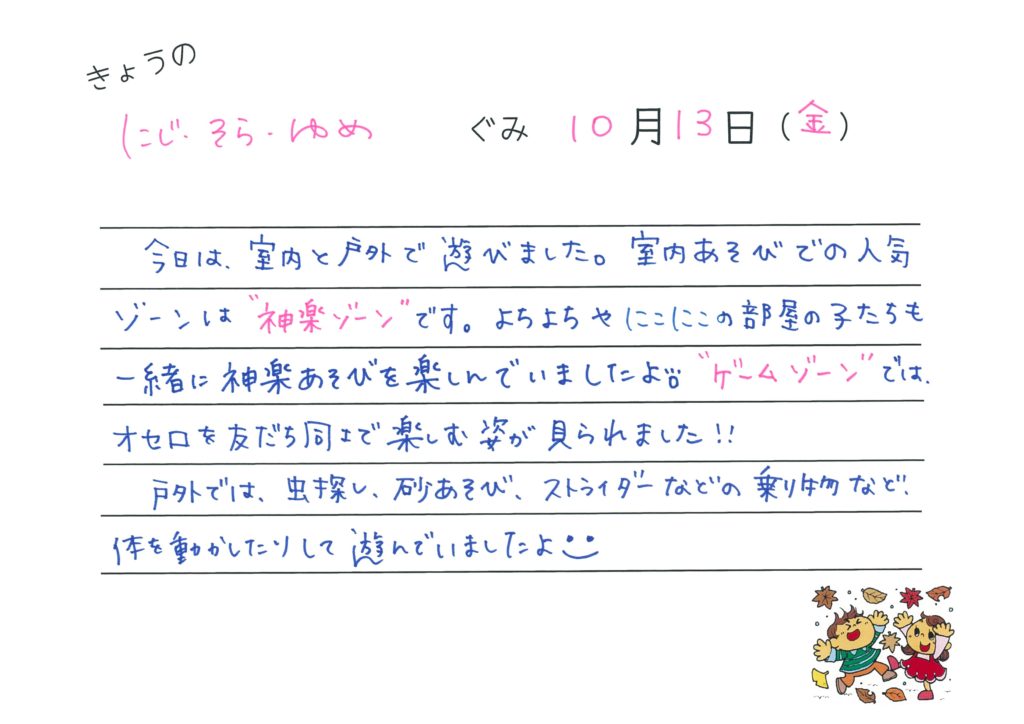 きょうの
にじ・そら・ゆめ ぐみ 10月13日(金)
今日は、室内と戸外で遊びました。室内あそびでの人気
ゾーンは"神楽ゾーン"です。よちよちやにこにこの部屋の子たちも
一緒に神楽あそびを楽しんでいましたよ。"ゲームゾーン"では、
オセロを友だち同士で楽しむ姿が見られました!!
戸外では、虫探し、砂あそび、ストライダーなどの乗り物など、
体を動かしたりして遊んでいましたよ